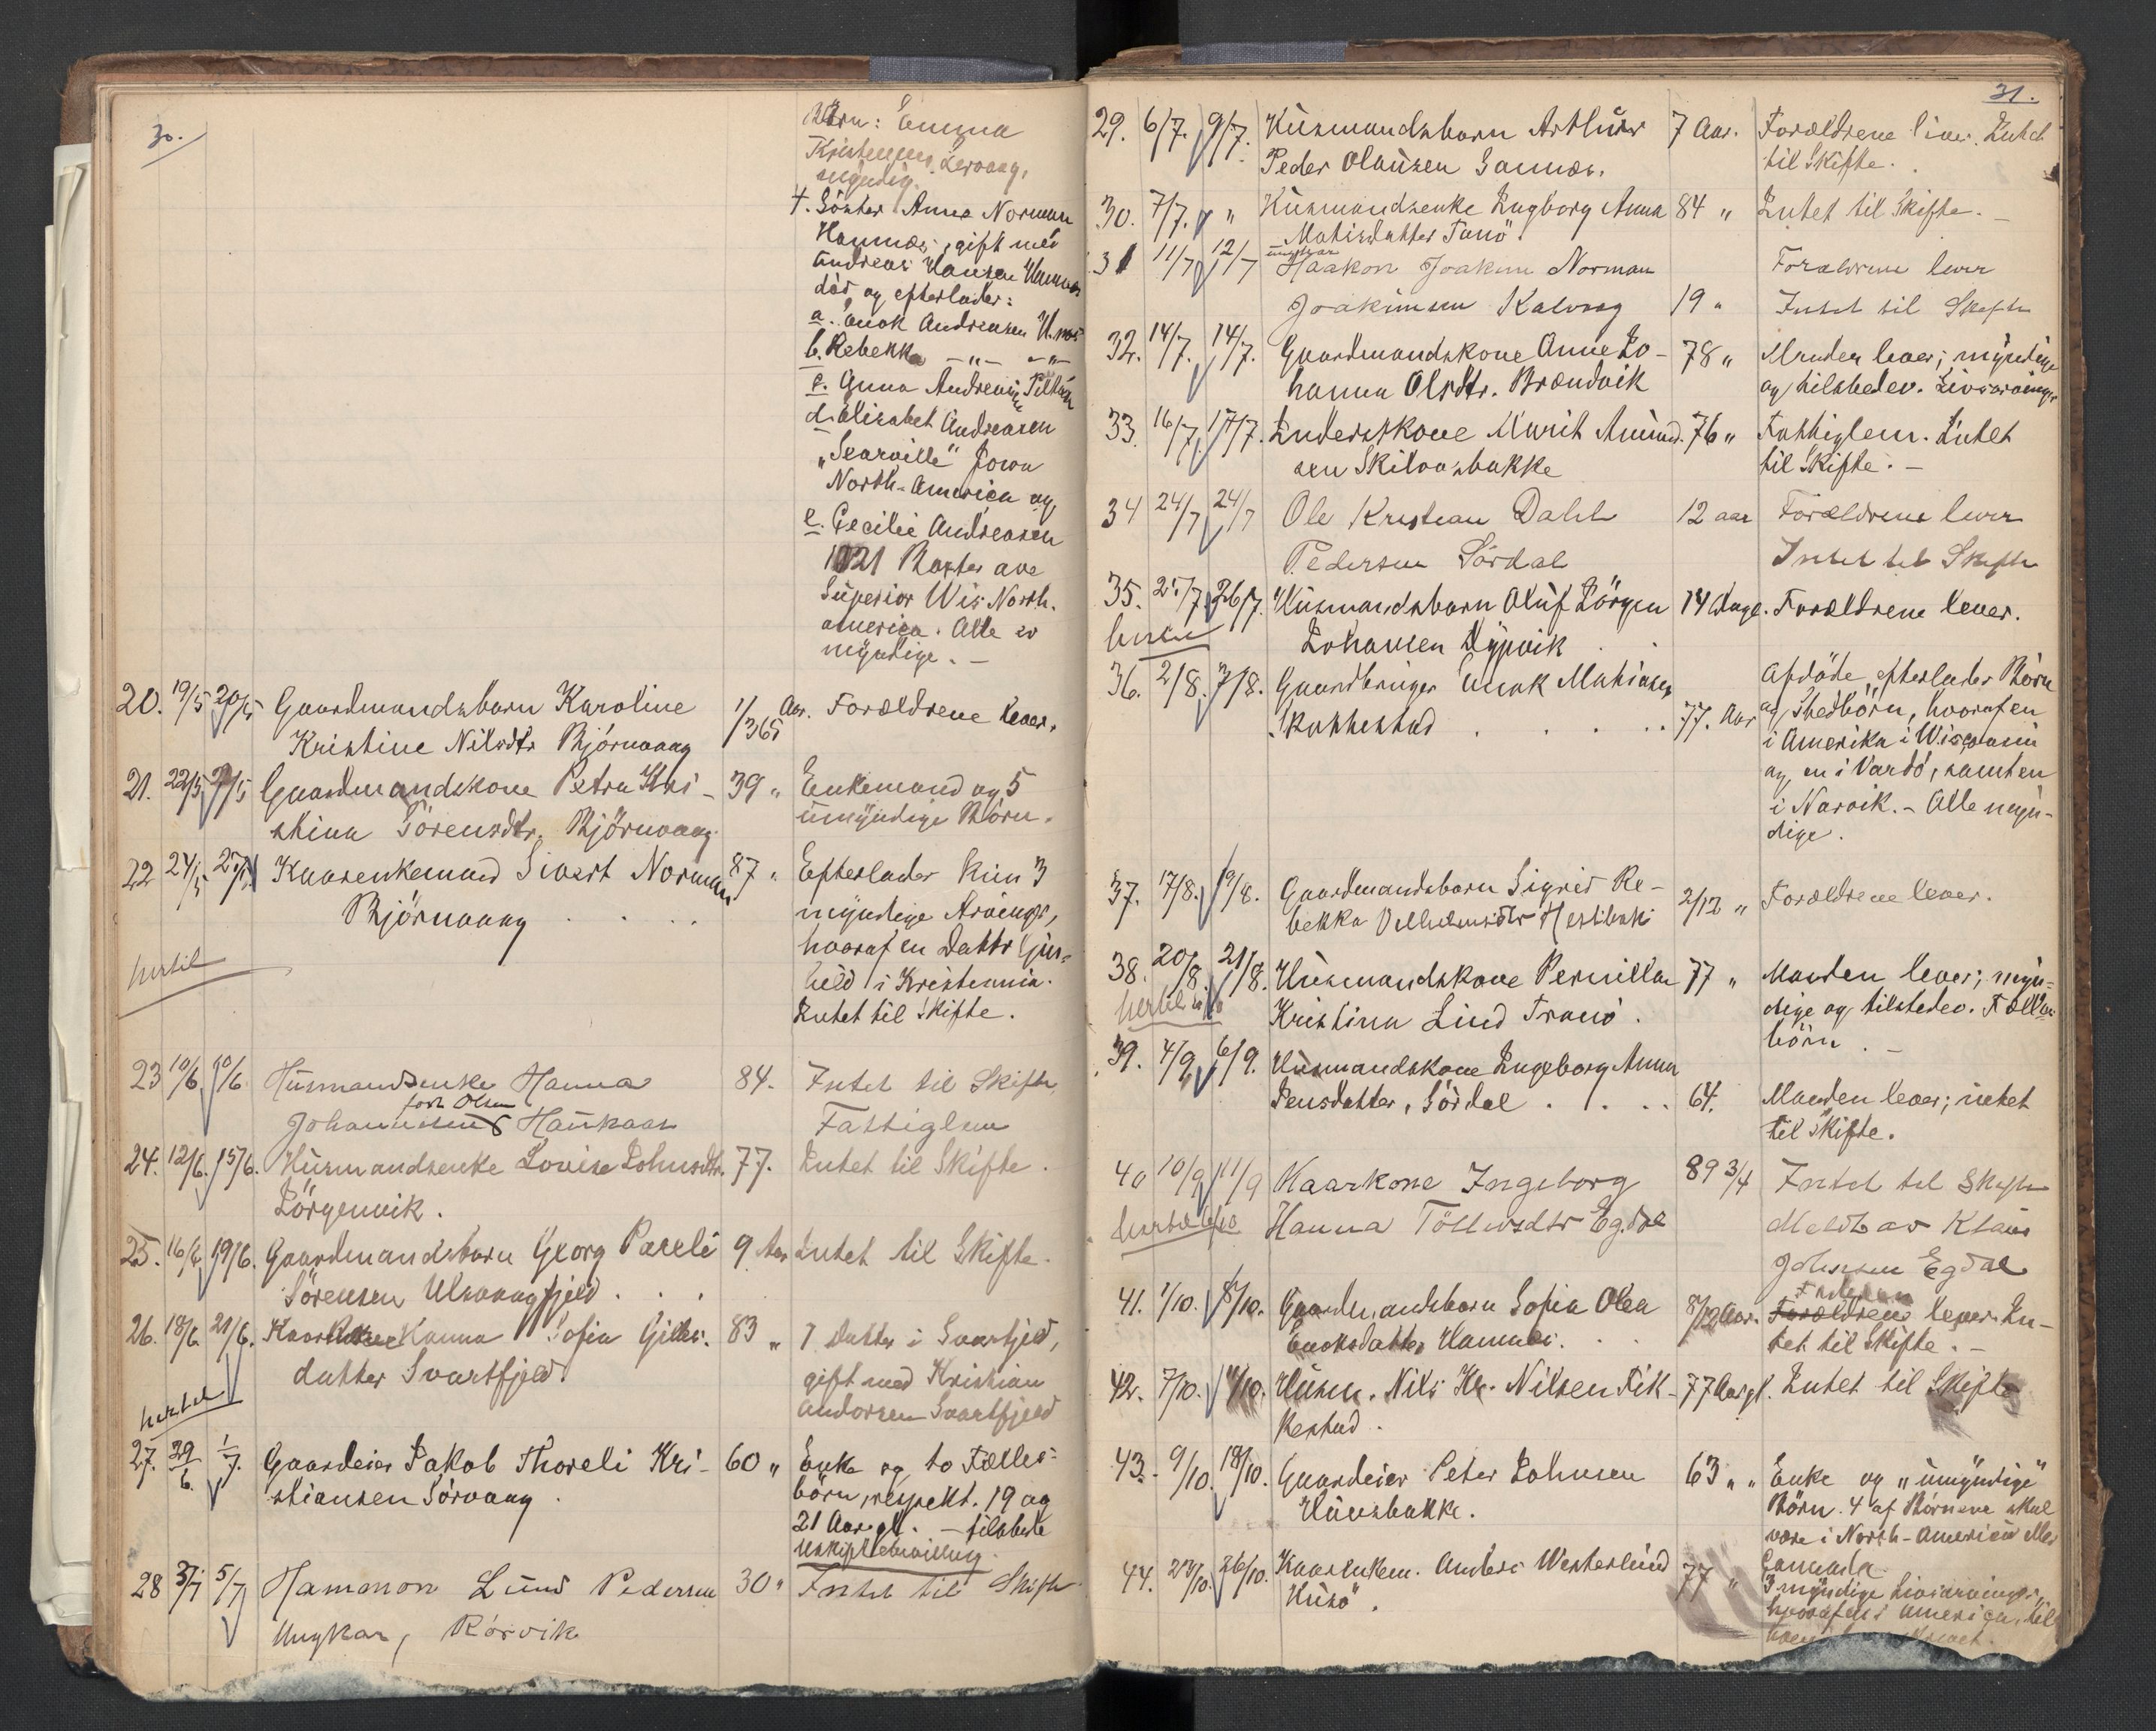 30.
Börn: Emma
Kristensen Lervaag,
myndig.
4. Söster Anne Norman
Hamnes, gift med
Andreas Hansen Hamnes
död og efterlader:
a. Enok Andreasen H.nes
b. Rebekka -"- -"-
c. Anna Andreasen
d. Elisabet Andreasen
"Searville" Jowa
North-America og
e. Cecilie Andreasen
1021 Baxter ave
Superior Wis North.
america. Alle er
myndige. -
20. 19/5 20/5 Gaardmandsbarn Karoline 1/365 Aar. Forældrene lever.
Kristine Nilsdtr Björnvaag
21. 22/5 27/5 Gaardmandskone Petra Kri- 39 " Enkemand og 5
stina Sörensdtr. Björnvaag umyndige Börn.
22 24/5 27/5 Kaarenkemand Sivert Norman 87 " Efterlader kun 3
Björnvaag . . . . myndige Arvinger,
hvoraf en Datter
i Kristiania.
hertil
Intet til Skifte.
23 10/6 10/6 Husmandsenke Hanna 84. Intet til Skifte
født Olsen
Johannesens Haukaas Fattiglem
24. 12/6. 15/6. Husmandsenke Lovise Johnsdtr. 77. Intet til Skifte.
Jörgenvik.
25. 16/6 19/6. Gaardmandsbarn Georg Pareli 9 Aar Intet til Skifte.
Sörensen Ulvaagfjeld . . .
26. 18/6 21/6. Hanna Sofia 83 " 1 Datter i Svartfjeld,
datter Svartfjeld. gift med Kristian
Andorsen Svartfjeld
hertil
27. 29/6. 1/7. Gaardeier Jakob Thoreli Kri- 60 " Enke og to Fælles-
stiansen Sörvaag. börn, respekt. 19 og
21 Aar gl. - tilstede
Uskiftebevilling.
28 3/7 5/7 Hammon Lund Pedersen 30 " Intet til Skifte
Ungkar, Rörvik
31.
29. 6/7. 9/7. Husmandsbarn Arthur 7 Aar. Forældrene lever. Intet
Peder Olausen Sannes. til Skifte.
30. 7/7. " Husmandsenke Ingborg Anna 84 " Intet til Skifte. -
Matisdatter Tranö.
ungkar
31 11/7 12/7 Haakon Joakim Norman Forældrene lever
Joakimsen Kalvaag 19 " Intet til Skifte
32. 14/7. 14/7. Gaardmandskone Anne Jo- 78 " Manden lever; myndige
hanna Olsdtr. Brændvik og tilstedev. Livsarvinger
33. 16/7. 17/7. Inderstkone Marit Amund- 76 " Fattiglem. Intet
sen Skilvasbakke til Skifte. -
34 24/7 24/7 Ole Kristian Dahl 12 aar Forældrene lever
Pedersen Sördal Intet til Skifte
35. 25/7 26/7. Husmandsbarn Oluf Jörgen 14 Dage. Forældrene lever.
Johansen Dypvik
36. 2/8. 7/8. Gaardbruger Enok Mathiasen Afdöde efterlader Börn
77. Aar og Stedbörn, hvoraf en
i Amerika i Wisconsin
og en i Vardö, samt en
i Narvik. - Alle myn-
dige.
37. 17/8. 19/8. Gaardmandsbarn Sigrid Re- 2/12 " Forældrene lever.
bekka Vilhelmsdtr
38. 20/8. 21/8. Husmandskone Pernilla 77 " Manden lever; myn-
Kristina Lind Tranö. dige og tilstedev. Fælles
börn. -
39. 4/9. 6/9. Husmandskone Ingeborg Anna
Jensdatter, Sördal . . . . 64. Manden lever; intet
til Skifte.
40 10/9 11/9 Kaarkone Ingeborg 89 3/4 Intet til Skifte
Hanna Töllevsdtr Egdal Meldt av Klaus
Johnsen Egdal
Faderen
41. 1/10. 8/10. Gaardmandsbarn Sofia Olea 8/12 Aar. Forældrene lever. In-
Enoksdatter Hamnes. . . tet til Skifte. -
42. 7/10. 11/10. Husm. Nils Kr. Nilsen Fik- 77 Aar gl. Intet til Skifte
kestad.
43. 9/10. 18/10. Gaardeier Peter Johnsen 63 " " Enke og "umyndige"
Hausbakke. Börn. 4 af Börnene skal
være i North-America eller
Canada.
44. 23/10. 26/10. Kaarenkem. Anders Westerlund 77 " 3 myndige Livsarvinger,
Husö.